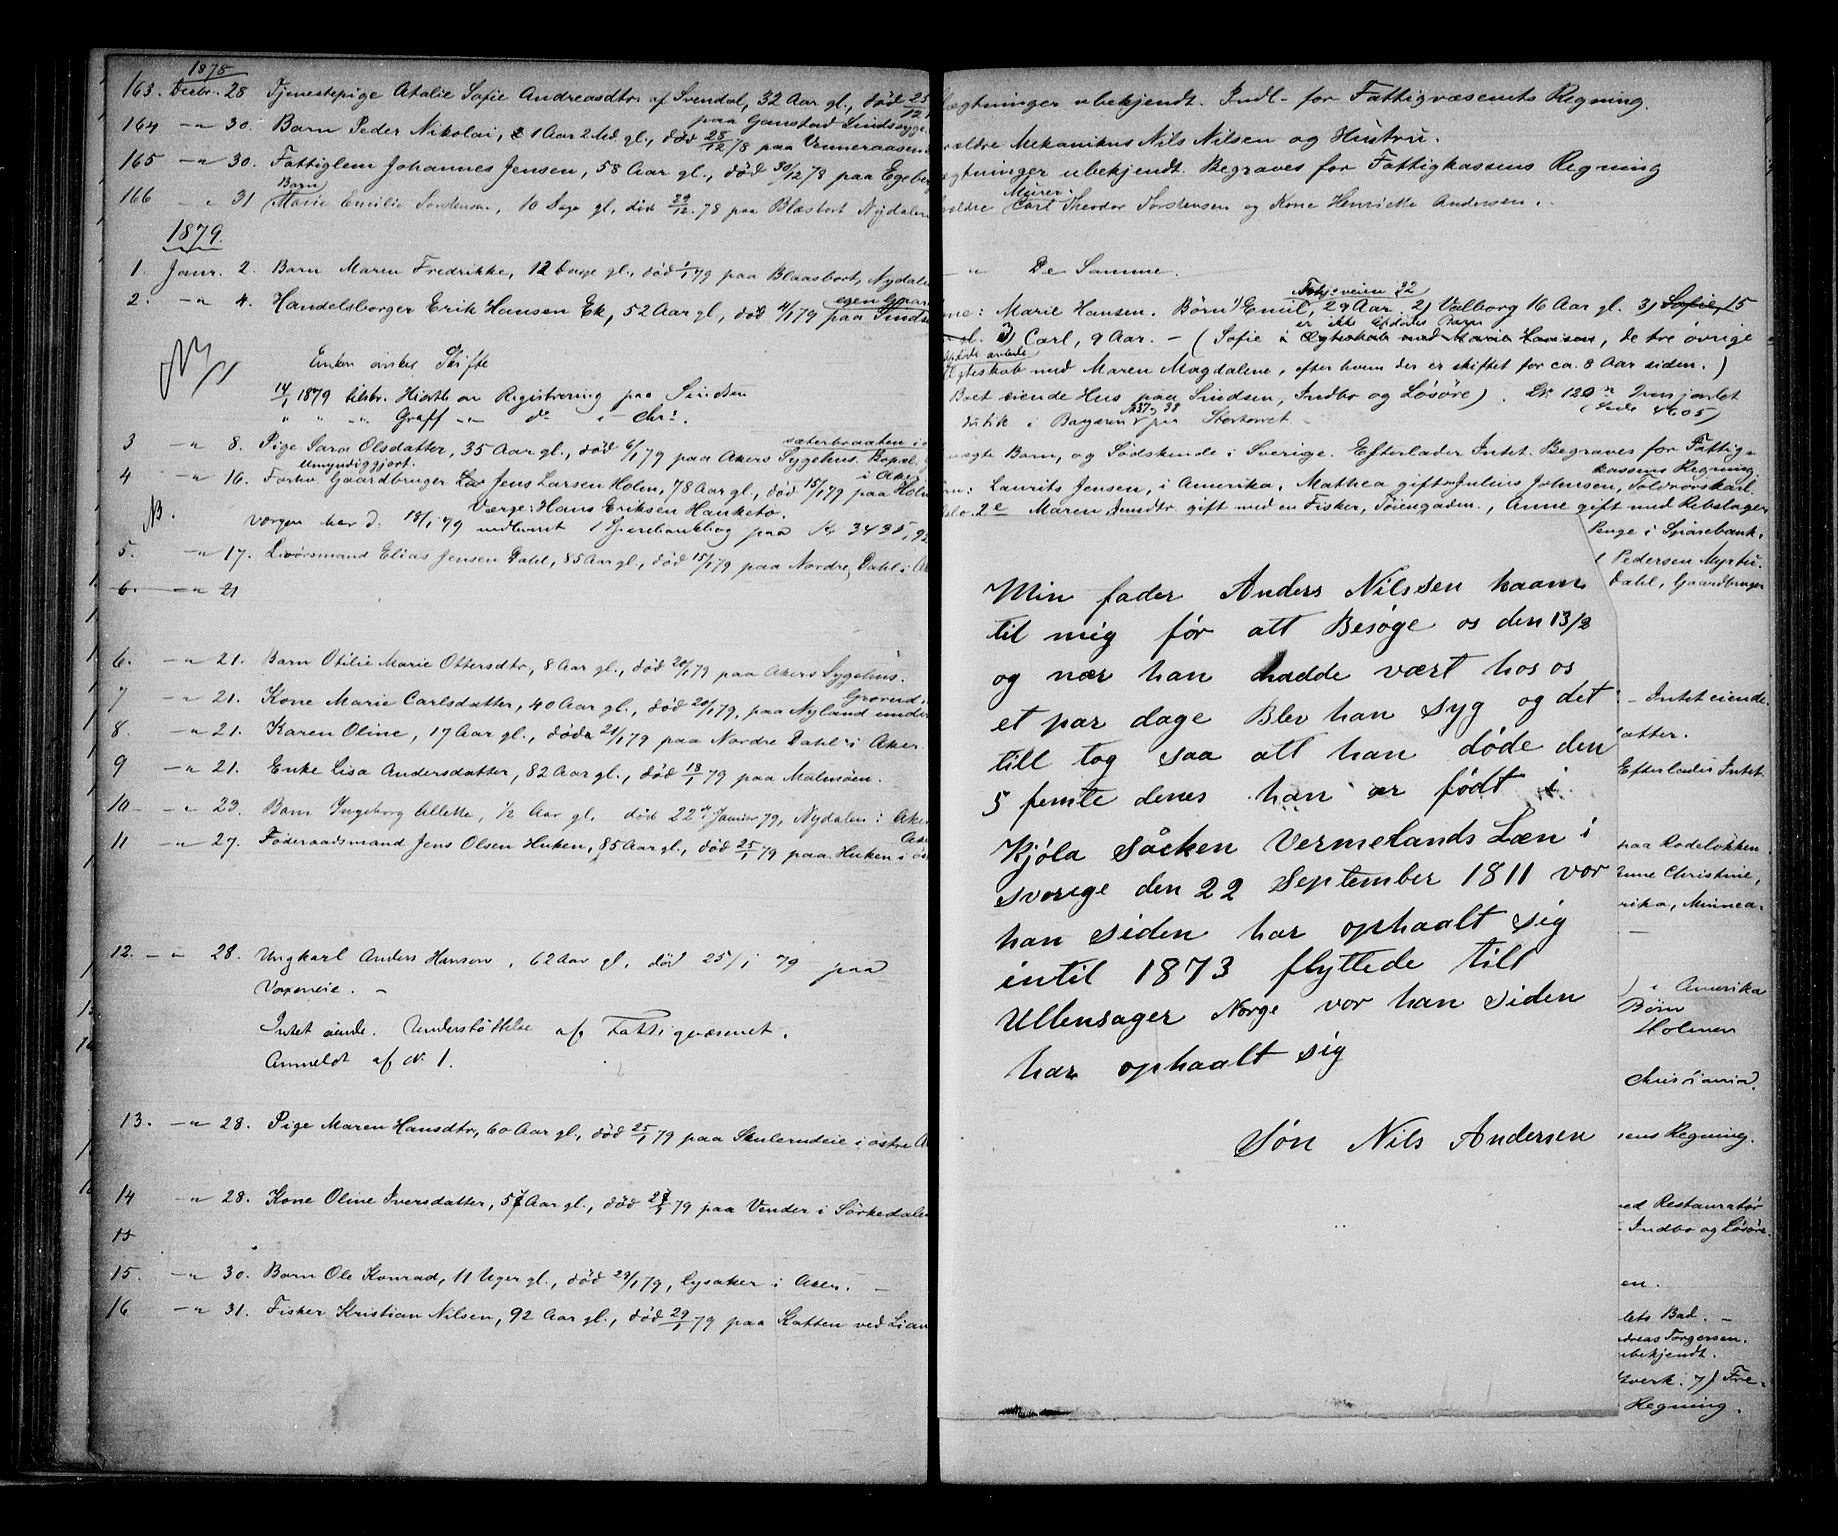 1878
163. Decbr. 28 Tjenestepige Atalie Sofie Andreasdtr. af Svendal, 32 Aar gl., død 25/12
paa Gaustad Sindssyge
164 -"- 30. Barn Peder Nikolai, 1 Aar 2 Md. gl., død 28/12 78 paa Venneraasen
165 -"- 30. Fattiglem Johannes Jensen, 58 Aar gl., død 30/12 78 paa Egeber
Barn
166 -"- 31 Marie Emilie Torstensen, 10 Dage gl., død 29/12. 78 paa Blasbort Nydalen
1879.
1. Janr. 2. Barn Maren Fredrikke, 12 Dage gl., død 1/1 79 paa Blaasbort, Nydale
egen Gaar
2. -"- 4. Handelsborger Erik Hansen Ek, 52 Aar gl., død 4/1 79 paa Sinds
Enken ønsker Skifte
14/1 1879 tilskr. Hiorth om Registrering paa Sindsen
" " -"- Graff -"- do i Chra.
sæterbraaten i
3 -"- 8. Pige Sara Olsdatter, 35 Aar gl., død 6/1 79 paa Akers Sygehus. Bopæl
Umyndiggjort. i Aker
4 -"- 16. Forhv. Gaardbruger Jens Larsen Holm, 78 Aar gl., død 15/1 79 paa Holm
Værge: Hans Eriksen Hanketo.
NB. Værgen har d. 18/1 79 indleveret 1 Sparebankbog paa Kr 3435,92
5. -"- 17. Livørsmand Elias Jensen Dahl, 85 Aar gl., død 15/1 79 paa Nordre Dahl i A
6 -"- 21
6. -"- 21. Barn Otilie Marie Ottersdtr, 8 Aar gl., død 20/1 79 paa Akers Sygehus.
Grorud,
7 -"- 21. Kone Marie Carlsdatter, 40 Aar gl., død 20/1 79, paa Nyland under
8. -"- 21. Karen Oline, 17 Aar gl., død 21/1 79 paa Nordre Dahl i Aker.
9 -"- 21. Enke Lisa Andersdatter, 82 Aar gl., død 18/1 79 paa Malmøen.
10 -"- 23. Barn Ingeborg Alette, 1/2 Aar gl. død 22de Januar 79, Nydalen i Aker
11 -"- 27. Føderaadsmand Jens Olsen Huken, 85 Aar gl., død 25/1 79 paa Huken i
12. -"- 28. Ungkarl Anders Hansen, 62 Aar gl., død 25/1 79 paa
Voxeneie.
Intet eiende. Understøttelse af Fattigvæsenet.
Anmeldt af N. 1.
13. -"- 28. Pige Maren Hansdtr, 60 Aar gl., død 25/1 79 paa Skulerudeie i østre A
14 -"- 28. Kone Oline Iversdatter, 57 Aar gl., død 27/1 79 paa Vender i Sørkedalen
15
15. -"- 30. Barn Ole Konrad, 11 Uger gl., død 29/1 79, Lysaker i Aker.
16 -"- 31. Fisker Kristian Nilsen, 92 Aar gl., død 29/1 79 paa Katten ved Lian
lægtninger ubekjendt. Indl. for Fattigvæsenets Regning.
rældre Mekanikus Nils Nilsen og Hustru.
ægtninger ubekjendt. Begraves for Fattigkassens Regning
Murer
ældre Carl Theodor Torstensen og Kone Henriette Andersen.
" De Samme.
ne: Marie Hansen. Børn 1) Emil, 29 Aar 2) Valborg 16 Aar gl. 3) Sofie, 15
er ikke Afdødes Barn
gl. 3) Carl, 9 Aar. - (Sofie i Ægteskab med Marie Hansen, de tre øvrige
Ægteskab med Maren Magdalene, efter hvem der er skiftet for ca. 8 Aar siden.)
Boet eiende Hus paa Sindsen, Indbo og Løsøre).
butik i Basaren 37, 38 paa Stortorvet
ægte Barn, og Sødskende i Sverige. Efterlader Intet. Begraves for Fattig-
kassens Regning
rn: Laurits Jensen, i Amerika, Mathea gift m Julius Johnsen, Toldrorskarl
2e Maren Jensdtr. gift med en Fisker, Tøiengaden., Anne gift med Rebslager
Penge i Sparebank.
Pedersen Myrhu-
Dahl, Gaardbruger
Min fader Anders Nilssen kaam
til mig før att Besøge os den 13/2
og nær han hadde vært hos os
et par dage Blev han syg og det
till tog saa att han døde den
5 femte denes han er født i
Kjøla såcken Vermelands Læn i
sverige den 22 September 1811 vor
han siden har ophaalt sig
intil 1873 flyttede till
Ullensager Norge vor han siden
har ophaalt sig
Søn Nils Andersen
- Intet eiende.
atter.
Efterlader Intet
paa Rodeløkken
Anne Christine,
rika, Minnea-
) i Amerika
Børn
Holmen
Christiania.
ens Regning.
ed Restauratør
Indbo og Løsøre.
en.
lets Bad.
dreas Torgersen.
ubekjendt.
tverk. 7) Fre-
Regning.